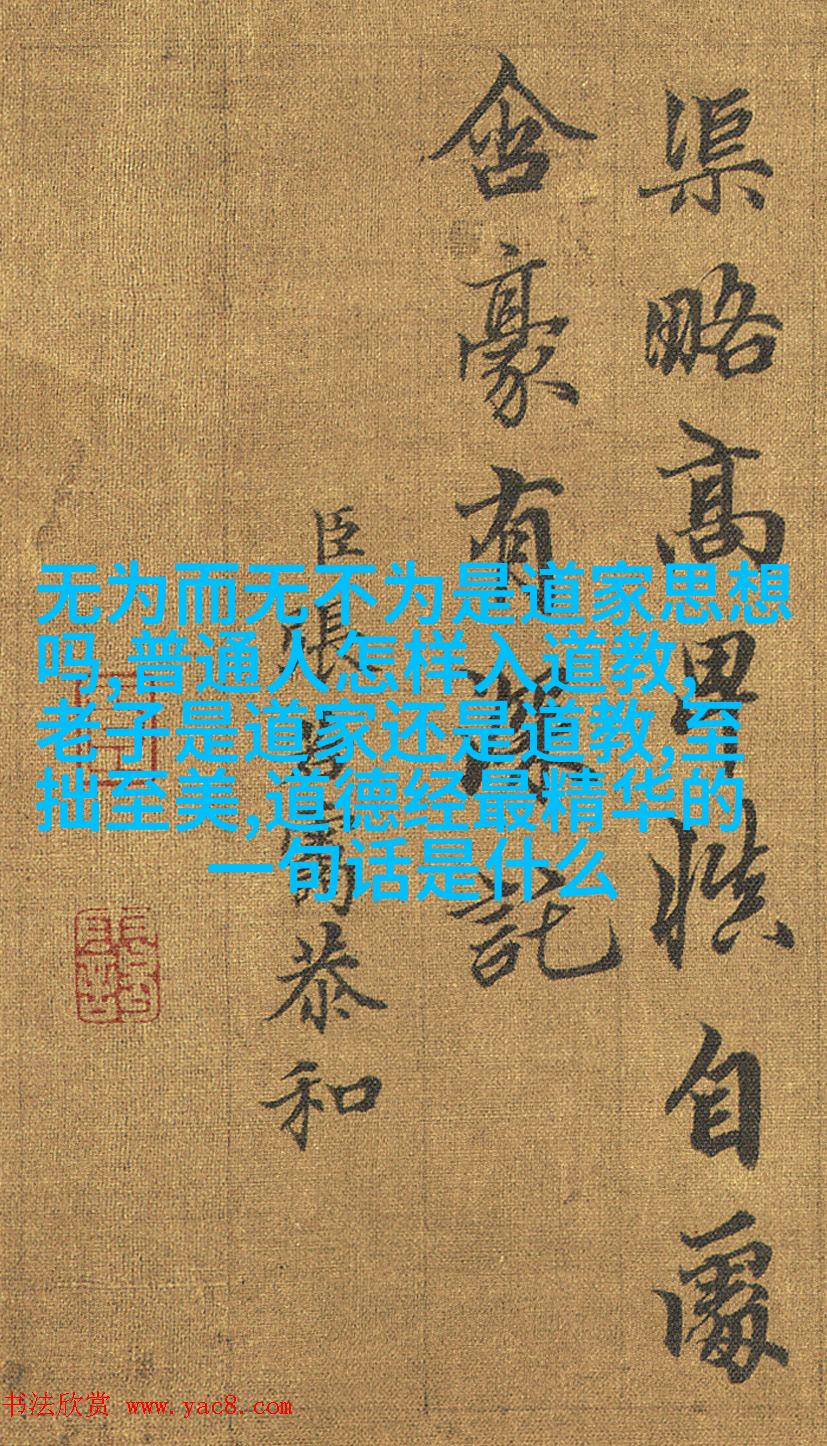 渠略高卑慎自處
含豪有深託
臣張若靄恭和
无为而无不为是道家思想
吗,普通人怎样入道教,
老子是道家还是道教,至
拙至美,道德经最精华的
一句话是什么
书法欣赏 www.yac8.com